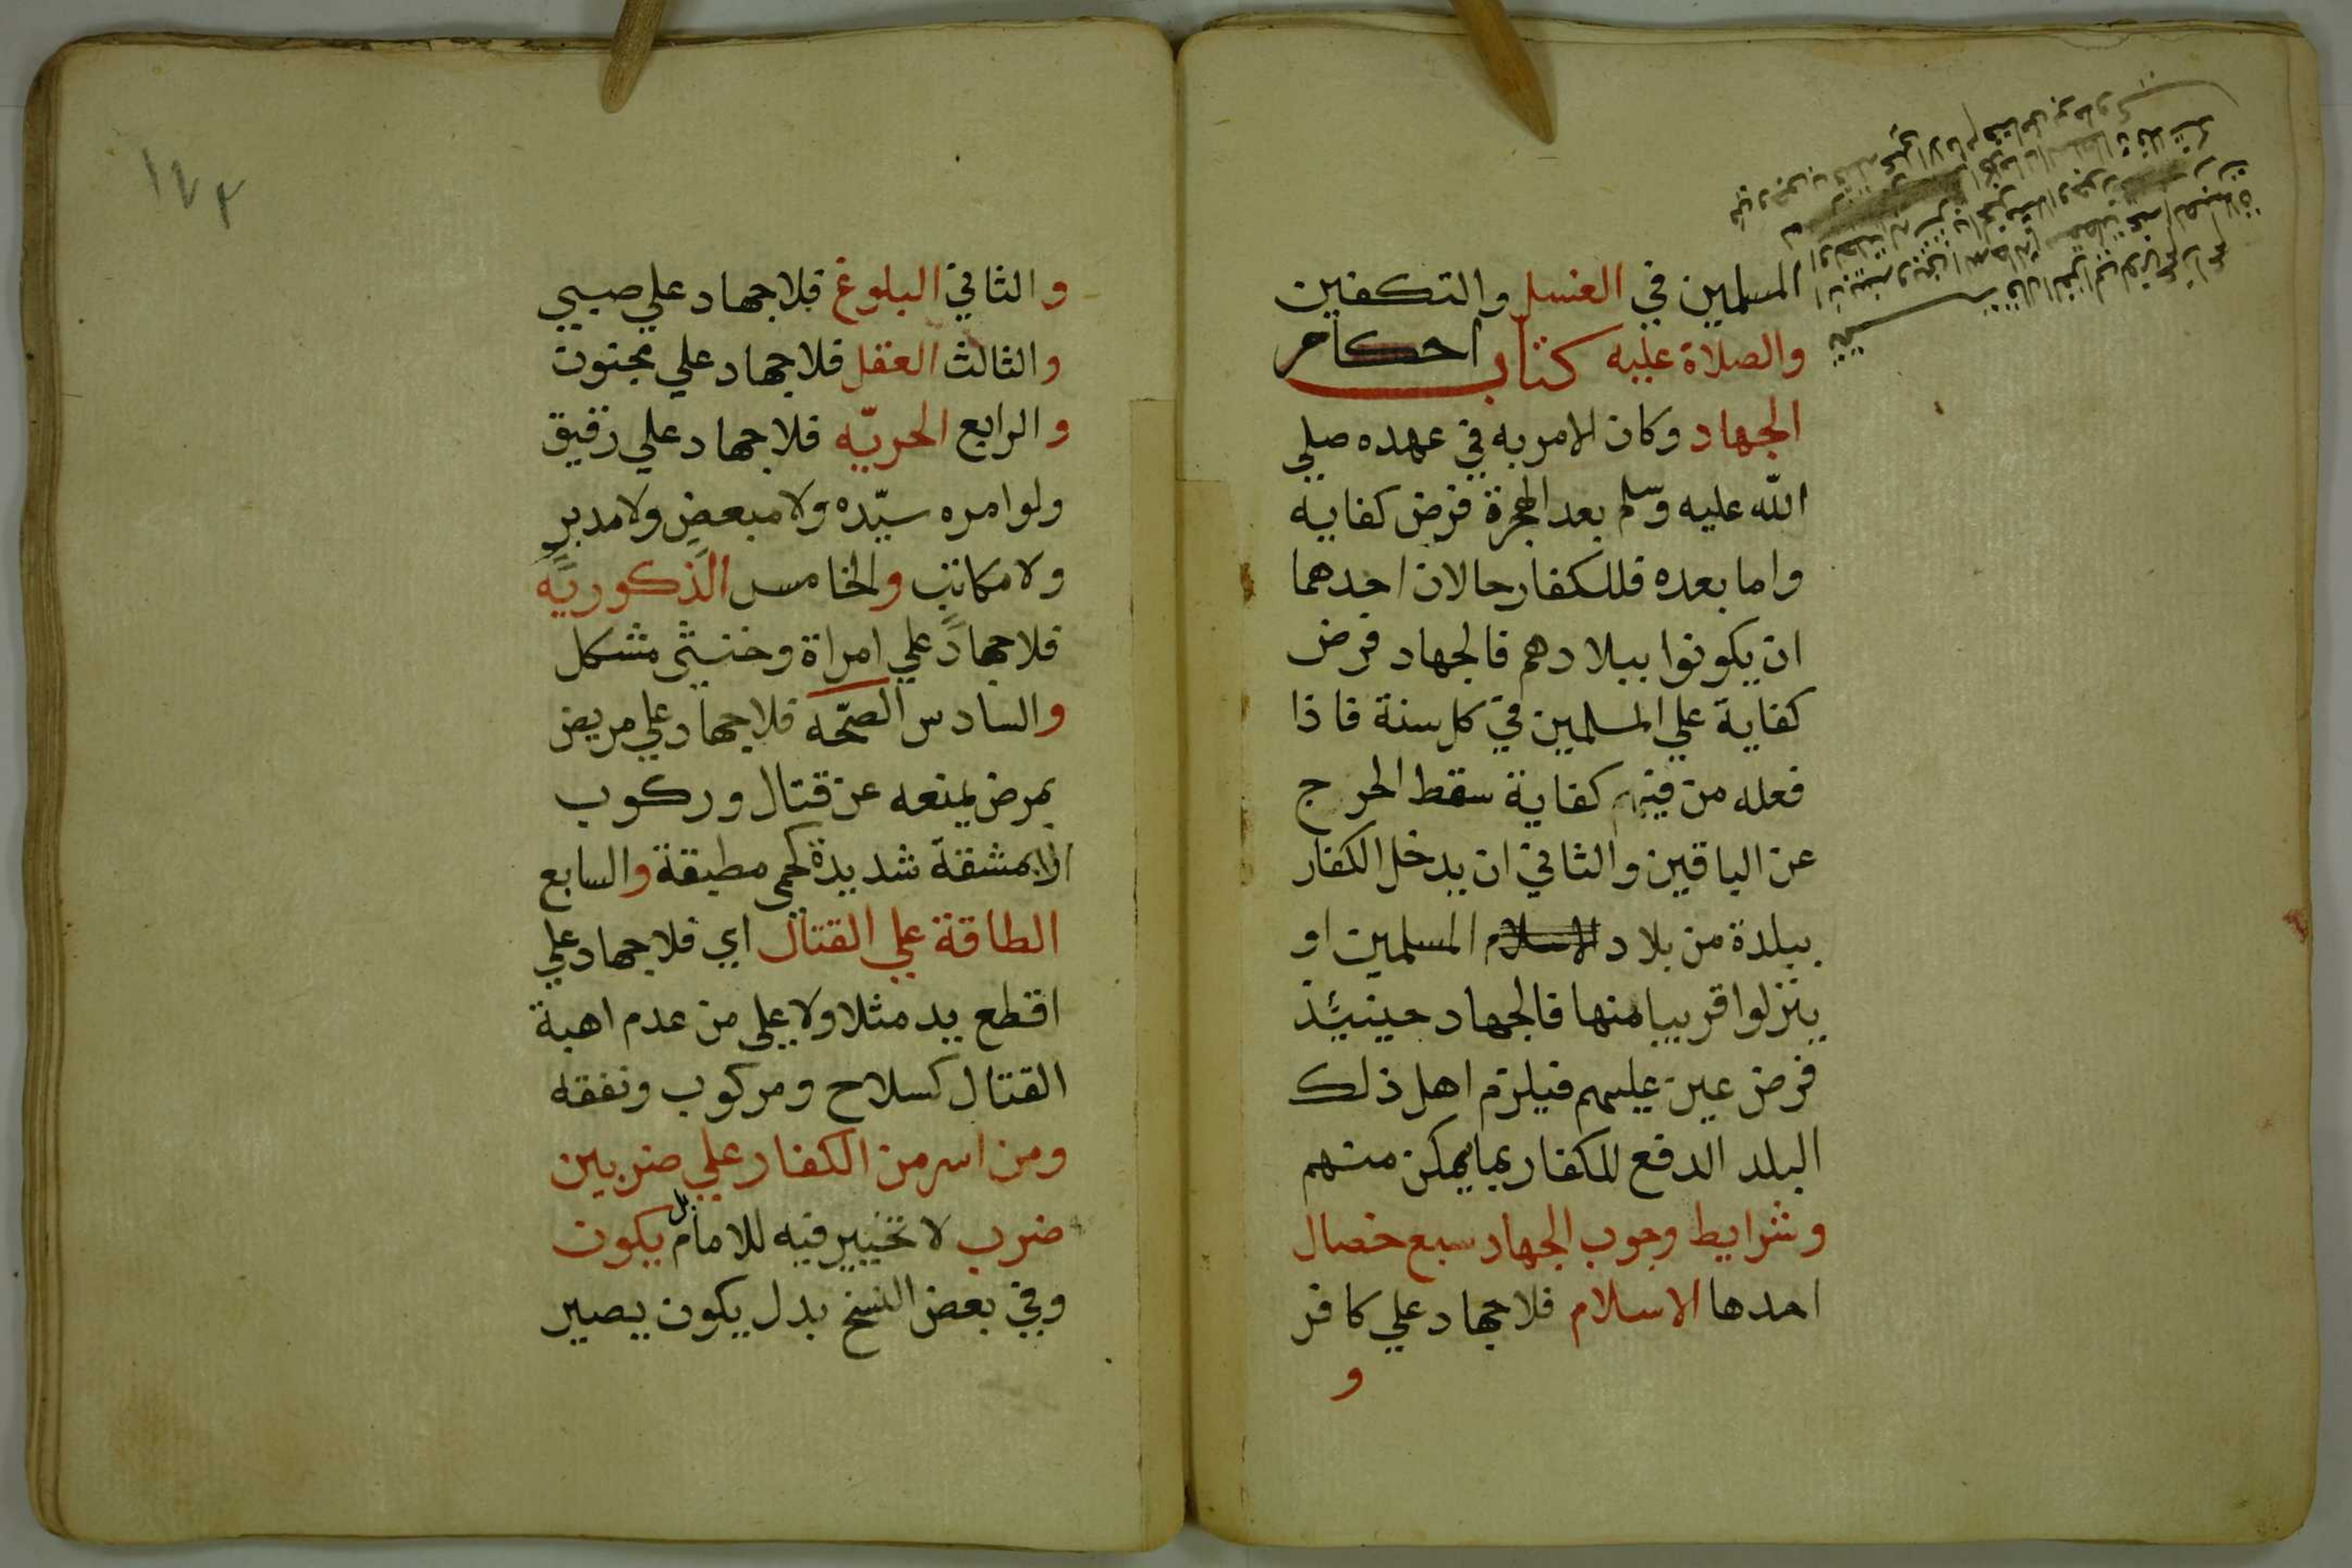 المسلمين في الغسل والتكفين
والصلاة عليه كتاب احكام
الجهاد وكان الامر به في عهده صلي
الله عليه وسلم بعد الهجرة فرض كفايه
واما بعده فللكفار حالان احدهما
ان يكونوا ببلادهم فالجهاد فرض
كفاية علي المسلمين في كل سنة فاذا
فعله من فيهم كفاية سقط الحرج
عن الباقين والثاني ان يدخل الكفار
ببلدة من بلاد الاسلام المسلمين او
ينزلوا قريبا منها فالجهاد حينيئذ
فرض عين عليهم فيلزم اهل ذلك
البلد الدفع للكفار بما يمكن منهم
وشرايط وجوب الجهاد سبع خصال
احدها الاسلام فلا جهاد علي كافر
و
١٧٣
والثاني البلوغ فلا جهاد علي صبي
والثالث العقل فلا جهاد علي مجنون
والرابع الحريّه فلا جهاد علي رقيق
ولو امره سيّده ولا مبعض ولا مدبر
ولا مكاتب والخامس الذكوريّه
فلا جهاد علي امراة وخنثى مشكل
والسادس الصحّه فلا جهاد علي مريض
بمرض يمنعه عن قتال وركوب
الا بمشقة شديدة كحمى مطبقة والسابع
الطاقة علي القتال اي فلا جهاد علي
اقطع يد مثلا ولا علي من عدم اهبة
القتال كسلاح ومركوب ونفقه
ومن اسر من الكفار علي ضربين
ضرب لا تخيير فيه للامام بل يكون
وفي بعض النسخ بدل يكون يصير